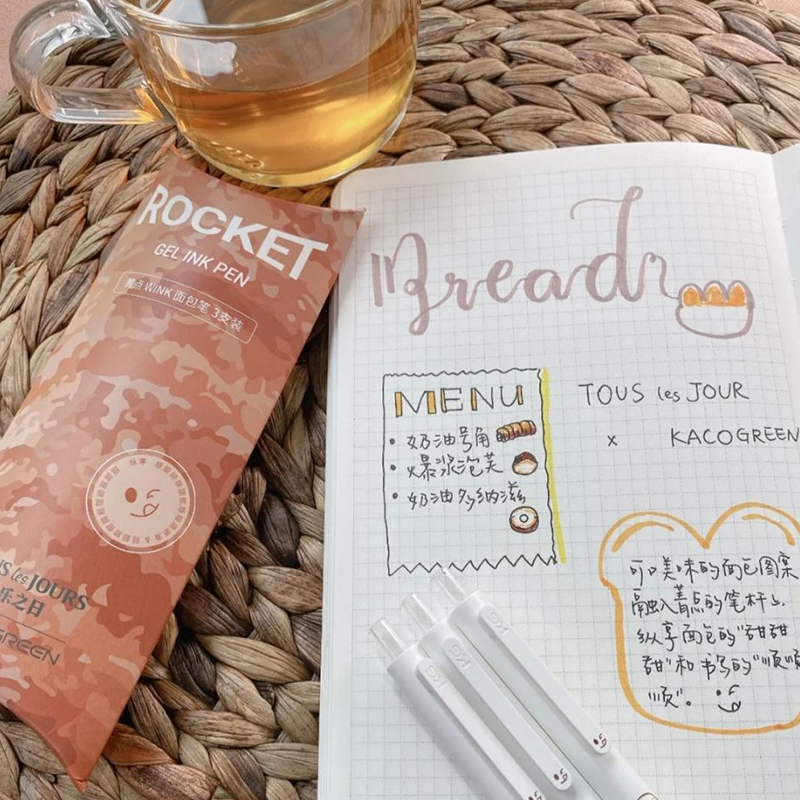 ROCKET
GEL INK PEN
菁点 WINK 面包笔 3支装
纵享
les JOURS
乐之日
GREEN
Bread
MENU
• 奶油号角
• 爆浆泡芙
• 奶油多纳滋
TOUS les JOUR
x KACOGREEN
可口美味的面包图案
融入菁点的笔杆上
纵享面包的"甜甜
甜"和书写的"顺顺
顺"。
KG
KG
KG